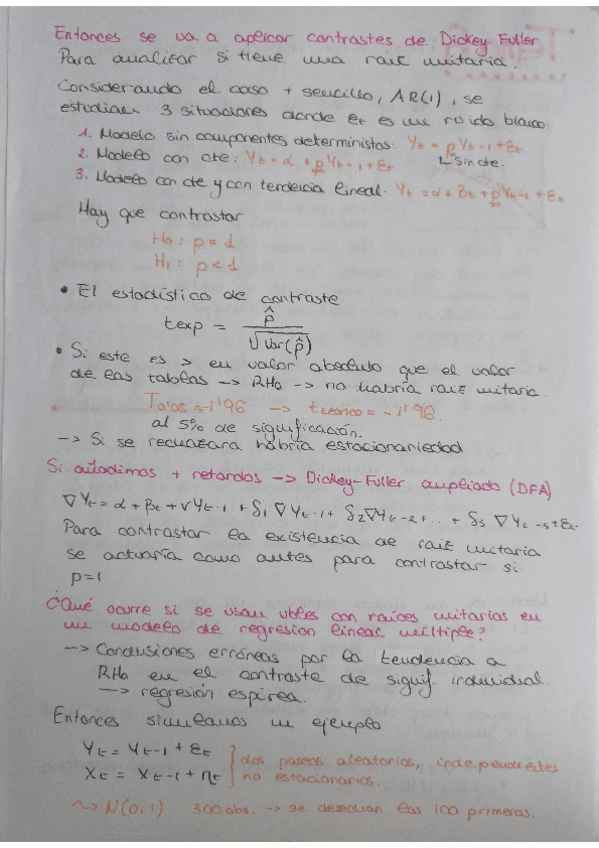 Entonces se va a aplicar contrastes de Dickey Fuller
Para analizar si tiene una raíz unitaria.
Considerando el caso + sencillo, AR(1), se
estudian 3 situaciones donde εt es un ruido blanco:
1. Modelo sin componentes deterministas: Yt = ρYt-1 + εt
↳ sin cte.
2. Modelo con cte: Yt = α + ρYt-1 + εt
3. Modelo con cte y con tendencia lineal. Yt = α + βt + ρYt-1 + εt
Hay que contrastar
H0: ρ = 1
H1: ρ < 1
• El estadístico de contraste
texp = ρ̂ / √Var(ρ̂)
• Si este es > en valor absoluto que el valor
de las tablas → RH0 → no habría raíz unitaria.
T0'05 = -1'96 → t teórico = -1'96
al 5% de significación.
→ Si se rechazara habría estacionariedad
Si añadimos + retardos → Dickey-Fuller ampliado (DFA)
∇Yt = α + βt + γYt-1 + δ1 ∇Yt-1 + δ2 ∇Yt-2 + .. + δs ∇Yt-s + εt
Para contrastar la existencia de raíz unitaria
se actuaría como antes para contrastar si
ρ=1
¿Qué ocurre si se usan vbles con raíces unitarias en
un modelo de regresión lineal múltiple?
→ Conclusiones erróneas por la tendencia a
RH0 en el contraste de signif. individual.
→ regresión espúrea.
Entonces simulamos un ejemplo
Yt = Yt-1 + εt
Xt = Xt-1 + ηt
} dos paseos aleatorios, independientes
no estacionarios.
~> N(0,1) 300 obs. → se desechan las 100 primeras.